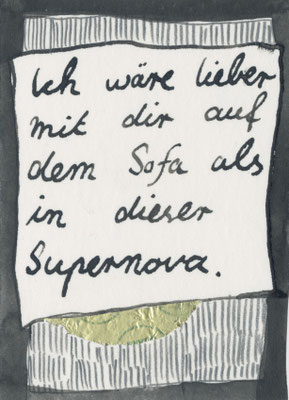 Ich wäre lieber
mit dir auf
dem Sofa als
in dieser
Supernova.